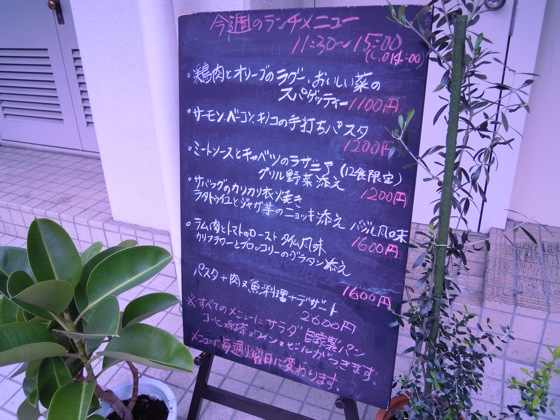 今週のランチメニュー
11:30〜15:00
(L.O14:00)
・鶏肉とオリーブのラグー、おいしい菜の
スパゲッティー 1100円
・サーモン、ベーコン、キノコの手打ちパスタ
1200円
・ミートソースとキャベツのラザニア (12食限定)
グリル野菜添え 1200円
・サバフグのカリカリ衣焼き
ラタトゥイユとジャガ芋のニョッキ添え バジル風味
1600円
・ラム肉とトマトのロースト タイム風味
カリフラワーとブロッコリーのグラタン添え
1600円
パスタ+肉又魚料理+デザート
2600円
※すべてのメニューにサラダ 自家製パン
コーヒー、紅茶、ワイン・ビールがつきます。
メニューは毎週火曜日に変わります。